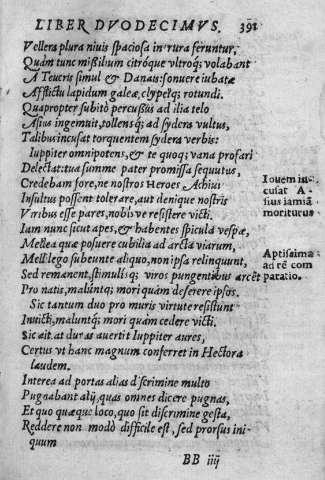 LIBER DVODECIMVS. 391
Vellera plura niuis spaciosa in rura feruntur,
Quàm tunc missilium citróque vltroq; volabant
A Teucris simul & Danais: sonuere iubatæ
Afflictu lapidum galeæ, clypeíq; rotundi.
Quapropter subitò percussus ad ilia telo
Asius ingemuit, tollensq; ad sydera vultus,
Talibus incusat torquentem sydera verbis:
Iuppiter omnipotens, & te quoq; vana profari
Delectat: tua summe pater promissa sequutus,
Credebam fore, ne nostros Heroes Achiui
Insultus possent tolerare, aut denique nostris
Viribus esse pares, nobisve resistere victi.
Iam nunc sicut apes, & habentes spicula vespæ,
Mellea quæ posuere cubilia ad arcta viarum,
Mellilego subeunte aliquo, non ipsa relinquunt,
Sed remanent, stimulisq; viros pungentibus arcẽt
Pro natis, maluntq; mori quàm deserere ipsos.
Sic tantum duo pro muris virtute resistunt
Inuicti, maluntq; mori quàm cedere victi.
Sic ait. at duras auertit Iuppiter aures,
Certus vt hanc magnum conferret in Hectora
laudem.
Interea ad portas alias discrimine multo
Pugnabant alij, quas omnes dicere pugnas,
Et quo quæque loco, quo sit discrimine gesta,
Reddere non modò difficile est, sed prorsus ini-
quum
BB iiij
Iouem in-
cusat A-
sius iamiā
moriturus
Aptissima
ad rē com
paratio.